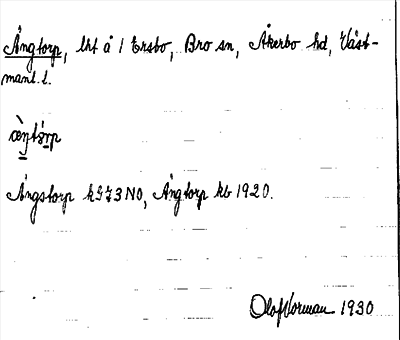 Ängtorp, lht å / Ersbo, Bro sn, Åkerbo hd, Väst-
manl. l.
æ̀ŋtɔ́rp
Ängstorp k973NO, Ängtorp kb 1920.
Olof Vorman 1930